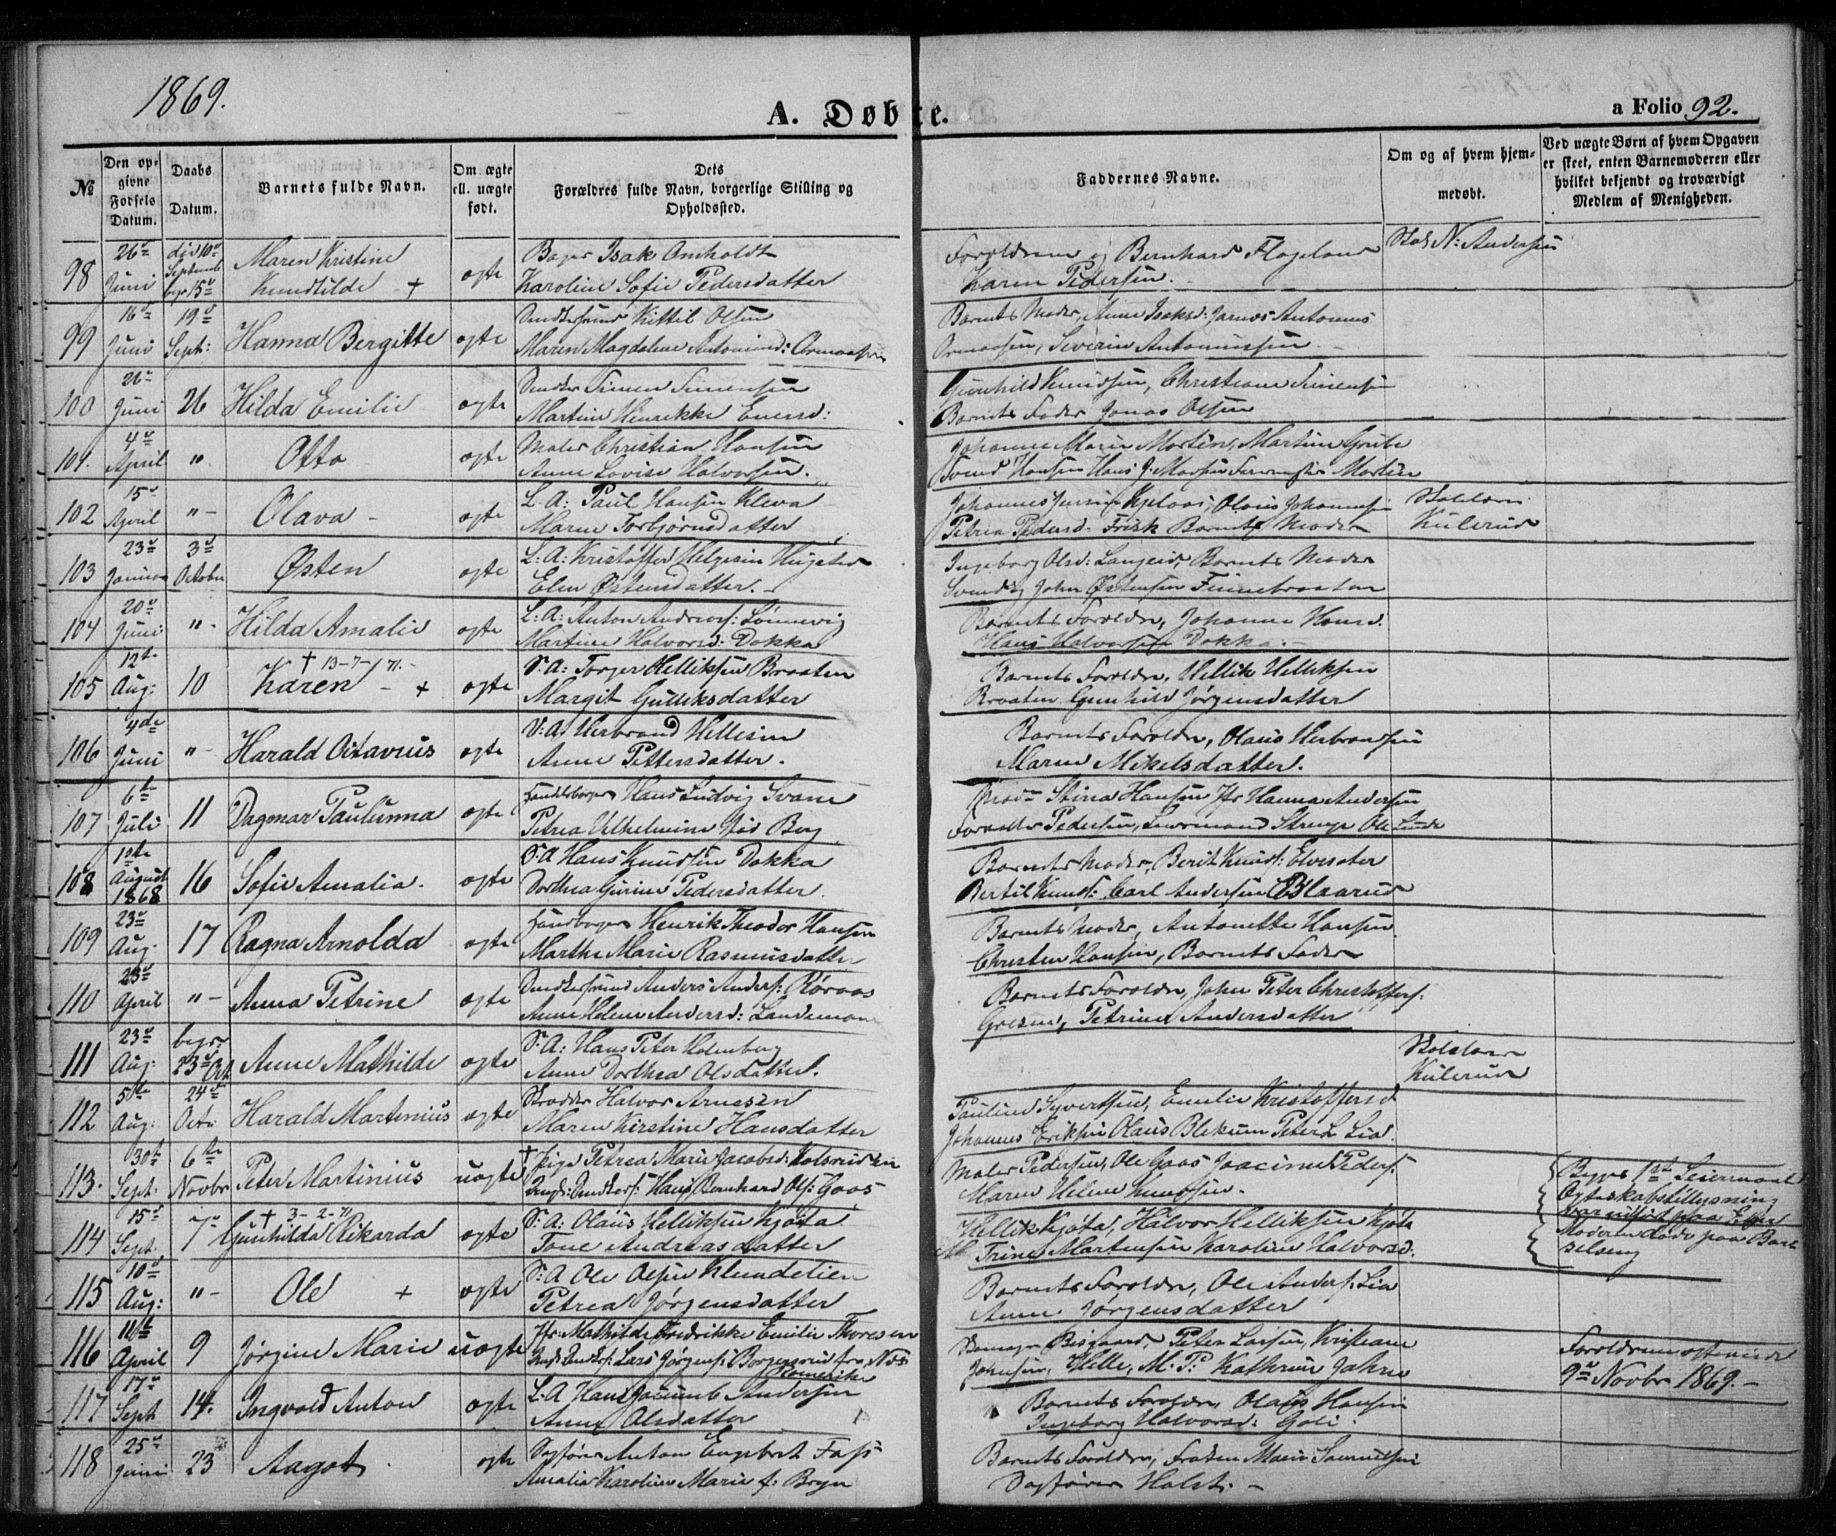 1869.
A. Døbte.
a Folio 92.
№
Den opgivne Fødsels Datum.
Daabs Datum.
Barnets fulde Navn.
Om ægte ell. uægte født.
Dets Forældres fulde Navn, borgerlige Stilling og Opholdssted.
Faddernes Navne.
Om og af hvem hjemmedøbt.
Ved uægte Børn af hvem Opgaven er skeet, enten Barnemoderen eller hvilket bekjendt og troværdigt Medlem af Menigheden.
98 26 Juni død 10 Septemb begr 15 Maren Kristine Knudtilde + ægte
Bager Isak Omholdt
Karoline Sofie Pedersdatter
Forældrene og Bernhard Flageland
Karen Pedersen.
N: Andersen
99 16 Juni 19 Sept: Hanna Bergitte ægte
Kittil Olsen
Maren Magdalene
Barnets Moder, Anne Isaksd: Antonius
Severin Antoniussen
100 26 Juni 26 Hilda Emilie ægte
Snedker Simen Simensen
Martine Henrikke Enersd:
Gunhild Knudsen, Christiane Simensen
Barnets Fader Jonas Olsen
101. 4 April " Otto ægte
Maler Christian Hansen
Anne Lovise Halvorsen.
Johanne Marie Morten, Martine Grube
Svend Hansen Hans J. Morten
102 15 April "- Olava - ægte
L: A: Paul Hansen Kleva
Maren Torbjørnsdatter
Johannes Olaus Johannesen
Petrea Pedersd. Frisk Barnets Moder
Kulerud
103 23 Januar 3 October Østen ægte
L: A: Kristoffer Helgesen
Elen Østensdatter.-
Ingeborg Olsd: Langeid, Barnets Moder
Svend og John Østensen Finnebraaten
104 20 Juni "- Hilda Amalie ægte
L: A: Anton Andreas: Lønnevig
Martine Halvorsd: Dokka
Barnets Forældre, Johanne Hansd.
Hans Halvorsen Dokka.-
105 12te Aug: 10 Karen - + † 13-7-71.- ægte
S: A: Torger Helliksen Braaten
Margit Gulliksdatter
Barnets Forældre, Hellik Helliksen
Braaten Gunhild Jørgensdatter
106 4de Juni "- Harald Octavius ægte
Herbrand Hellesen
Anne Pettersdatter.
Barnets Forældre, Olaus Herbrandsen
Maren Mikelsdatter.
107 6te Juli 11 Dagmar Paulunna ægte
Handelsborger Hans Ludvig Svane
Petrea Vilhelmine fød Berg
Stina Hansen Jfr Hanna Andersen
Pedersen, Ole Lunde
108 1ste August 1868 16 Sofie Amalia. ægte
S: A Hans Knudsen Dokka
Dorthea Gurine Pedersdatter
Barnets Moder, Berit Knuds:
Bertil Knuds: Carl Andersen Blaarud
109 23 Aug. 17 Ragna Arnolda ægte
Henrik Theodor Hansen
Marthe Marie Rasmusdatter
Barnets Moder, Antonette Hansen
Christen Hansen, Barnets Fader
110 23 April "- Anna Petrine ægte
Anders Anders: Røraas
Anne Helene Andersd: Landemoen
Barnets Forældre, John Peter Christoffers:
Petrine Andersdatter
111 23 Aug: begr 23 Oct Anne Mathilde ægte
S: A: Hans Peter Holmberg
Anne Dorthea Olsdatter.
Kulerud
112 5te Aug: 24 Octr Harald Martenius ægte
Skrædder Halvor Arnesen
Maren Kirstine Hansdatter
Pauline Syvertsen, Emelie Kristoffersd
Johannes Eriksen Olaus Blekum Peter L Lia
113. 30te Sept: 6te Novbr Peter Martinius uægte
† Pige Petrea Marie Jacobsd:
Ungk: Hans Bernhard Ols: Gaas
Maler Pedersen, Ole Gaas Joacime Peders:
Maren Helene Knudsen.
Begges 1ste Leiermaal
Moderen døde paa Barselseng
114 15 Sept. 7 Gunhilda Rikarda † 3-2-71 ægte
S: A: Olaus Helliksen Kjøta
Tone Andreasdatter
Hellik Kjøta, Halvor Helliksen Kjøta
Trine Martensen Karoline Halvorsd.
115 10 Aug: "- Ole + ægte
S: A Ole Olsen Klundetien
Petrea Jørgensdatter
Barnets Forældre, Ole Anders: Lia
Anne Jørgensdatter
116 11te April 9 Jørgine Marie uægte
Jfr: Mathilde Fredrikke Emilie Thoresen
Lars Jørgens: Borgersrud fra Næs Romerike
Bisgaard, Peter Larsen, Kristiane
Johnsen, Helle, M. P. Kathrine Jahn
Forældrene
9 Novbr 1869.-
117 17 Sept 14. Ingvold Anton ægte
L: A Hans Jacumb Andersen
Anne Olsdatter
Barnets Forældre, Olaus Hansen
Ingeborg Halvorsd: Goli.
118 25 Juni 23 Aagot. ægte
Sagfører Anton Engebret
Amalia Karoline Marie f. Bryn
Barnets Forældre, Frøken Marie Samuelsen
Sagfører Holst.-